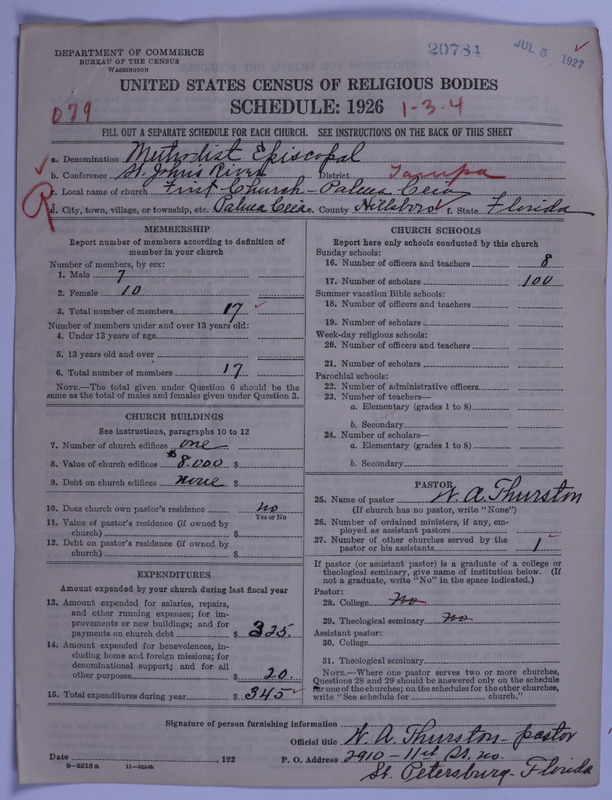 DEPARTMENT OF COMMERCE
BUREAU OF THE CENSUS
WASHINGTON
20784
JUL 5 1927
UNITED STATES CENSUS OF RELIGIOUS BODIES
SCHEDULE: 1926
079
1-3-4
FILL OUT A SEPARATE SCHEDULE FOR EACH CHURCH. SEE INSTRUCTIONS ON THE BACK OF THIS SHEET
a. Denomination Methodist Episcopal
b. Conference St. Johns River District Tampa
c. Local name of church First Church - Palma Ceia
d. City, town, village, or township, etc. Palma Ceia e. County Hillsboro f. State Florida
R
MEMBERSHIP
Report number of members according to definition of
member in your church
Number of members, by sex:
1. Male 7
2. Female 10
3. Total number of members 17
Number of members under and over 13 years old:
4. Under 13 years of age
5. 13 years old and over
6. Total number of members 17
NOTE.—The total given under Question 6 should be the
same as the total of males and females given under Question 3.
CHURCH BUILDINGS
See instructions, paragraphs 10 to 12
7. Number of church edifices one
8. Value of church edifices $8.000 $
9. Debt on church edifices none $
10. Does church own pastor's residence no
Yes or No
11. Value of pastor's residence (if owned by
church) $
12. Debt on pastor's residence (if owned by
church) $
EXPENDITURES
Amount expended by your church during last fiscal year
13. Amount expended for salaries, repairs,
and other running expenses; for im-
provements or new buildings; and for
payments on church debt $ 325.
14. Amount expended for benevolences, in-
cluding home and foreign missions; for
denominational support; and for all
other purposes $ 20.
15. Total expenditures during year $ 345
CHURCH SCHOOLS
Report here only schools conducted by this church
Sunday schools:
16. Number of officers and teachers 8
17. Number of scholars 100
Summer vacation Bible schools:
18. Number of officers and teachers
19. Number of scholars
Week-day religious schools:
20. Number of officers and teachers
21. Number of scholars
Parochial schools:
22. Number of administrative officers
23. Number of teachers—
a. Elementary (grades 1 to 8)
b. Secondary
24. Number of scholars—
a. Elementary (grades 1 to 8)
b. Secondary
PASTOR
25. Name of pastor W. A. Thurston
(If church has no pastor, write "None")
26. Number of ordained ministers, if any, em-
ployed as assistant pastors
27. Number of other churches served by the
pastor or his assistants 1
If pastor (or assistant pastor) is a graduate of a college or
theological seminary, give name of institution below. (If
not a graduate, write "No" in the space indicated.)
Pastor:
28. College No
29. Theological seminary No
Assistant pastor:
30. College
31. Theological seminary
NOTE.—Where one pastor serves two or more churches,
Questions 28 and 29 should be answered only on the schedule
for one of the churches; on the schedules for the other churches,
write "See schedule for church."
Signature of person furnishing information
Official title W. A. Thurston - pastor
Date , 192 P. O. Address 2910 - 11th St. no.
8-5518a 11-9554b
St. Petersburg - Florida